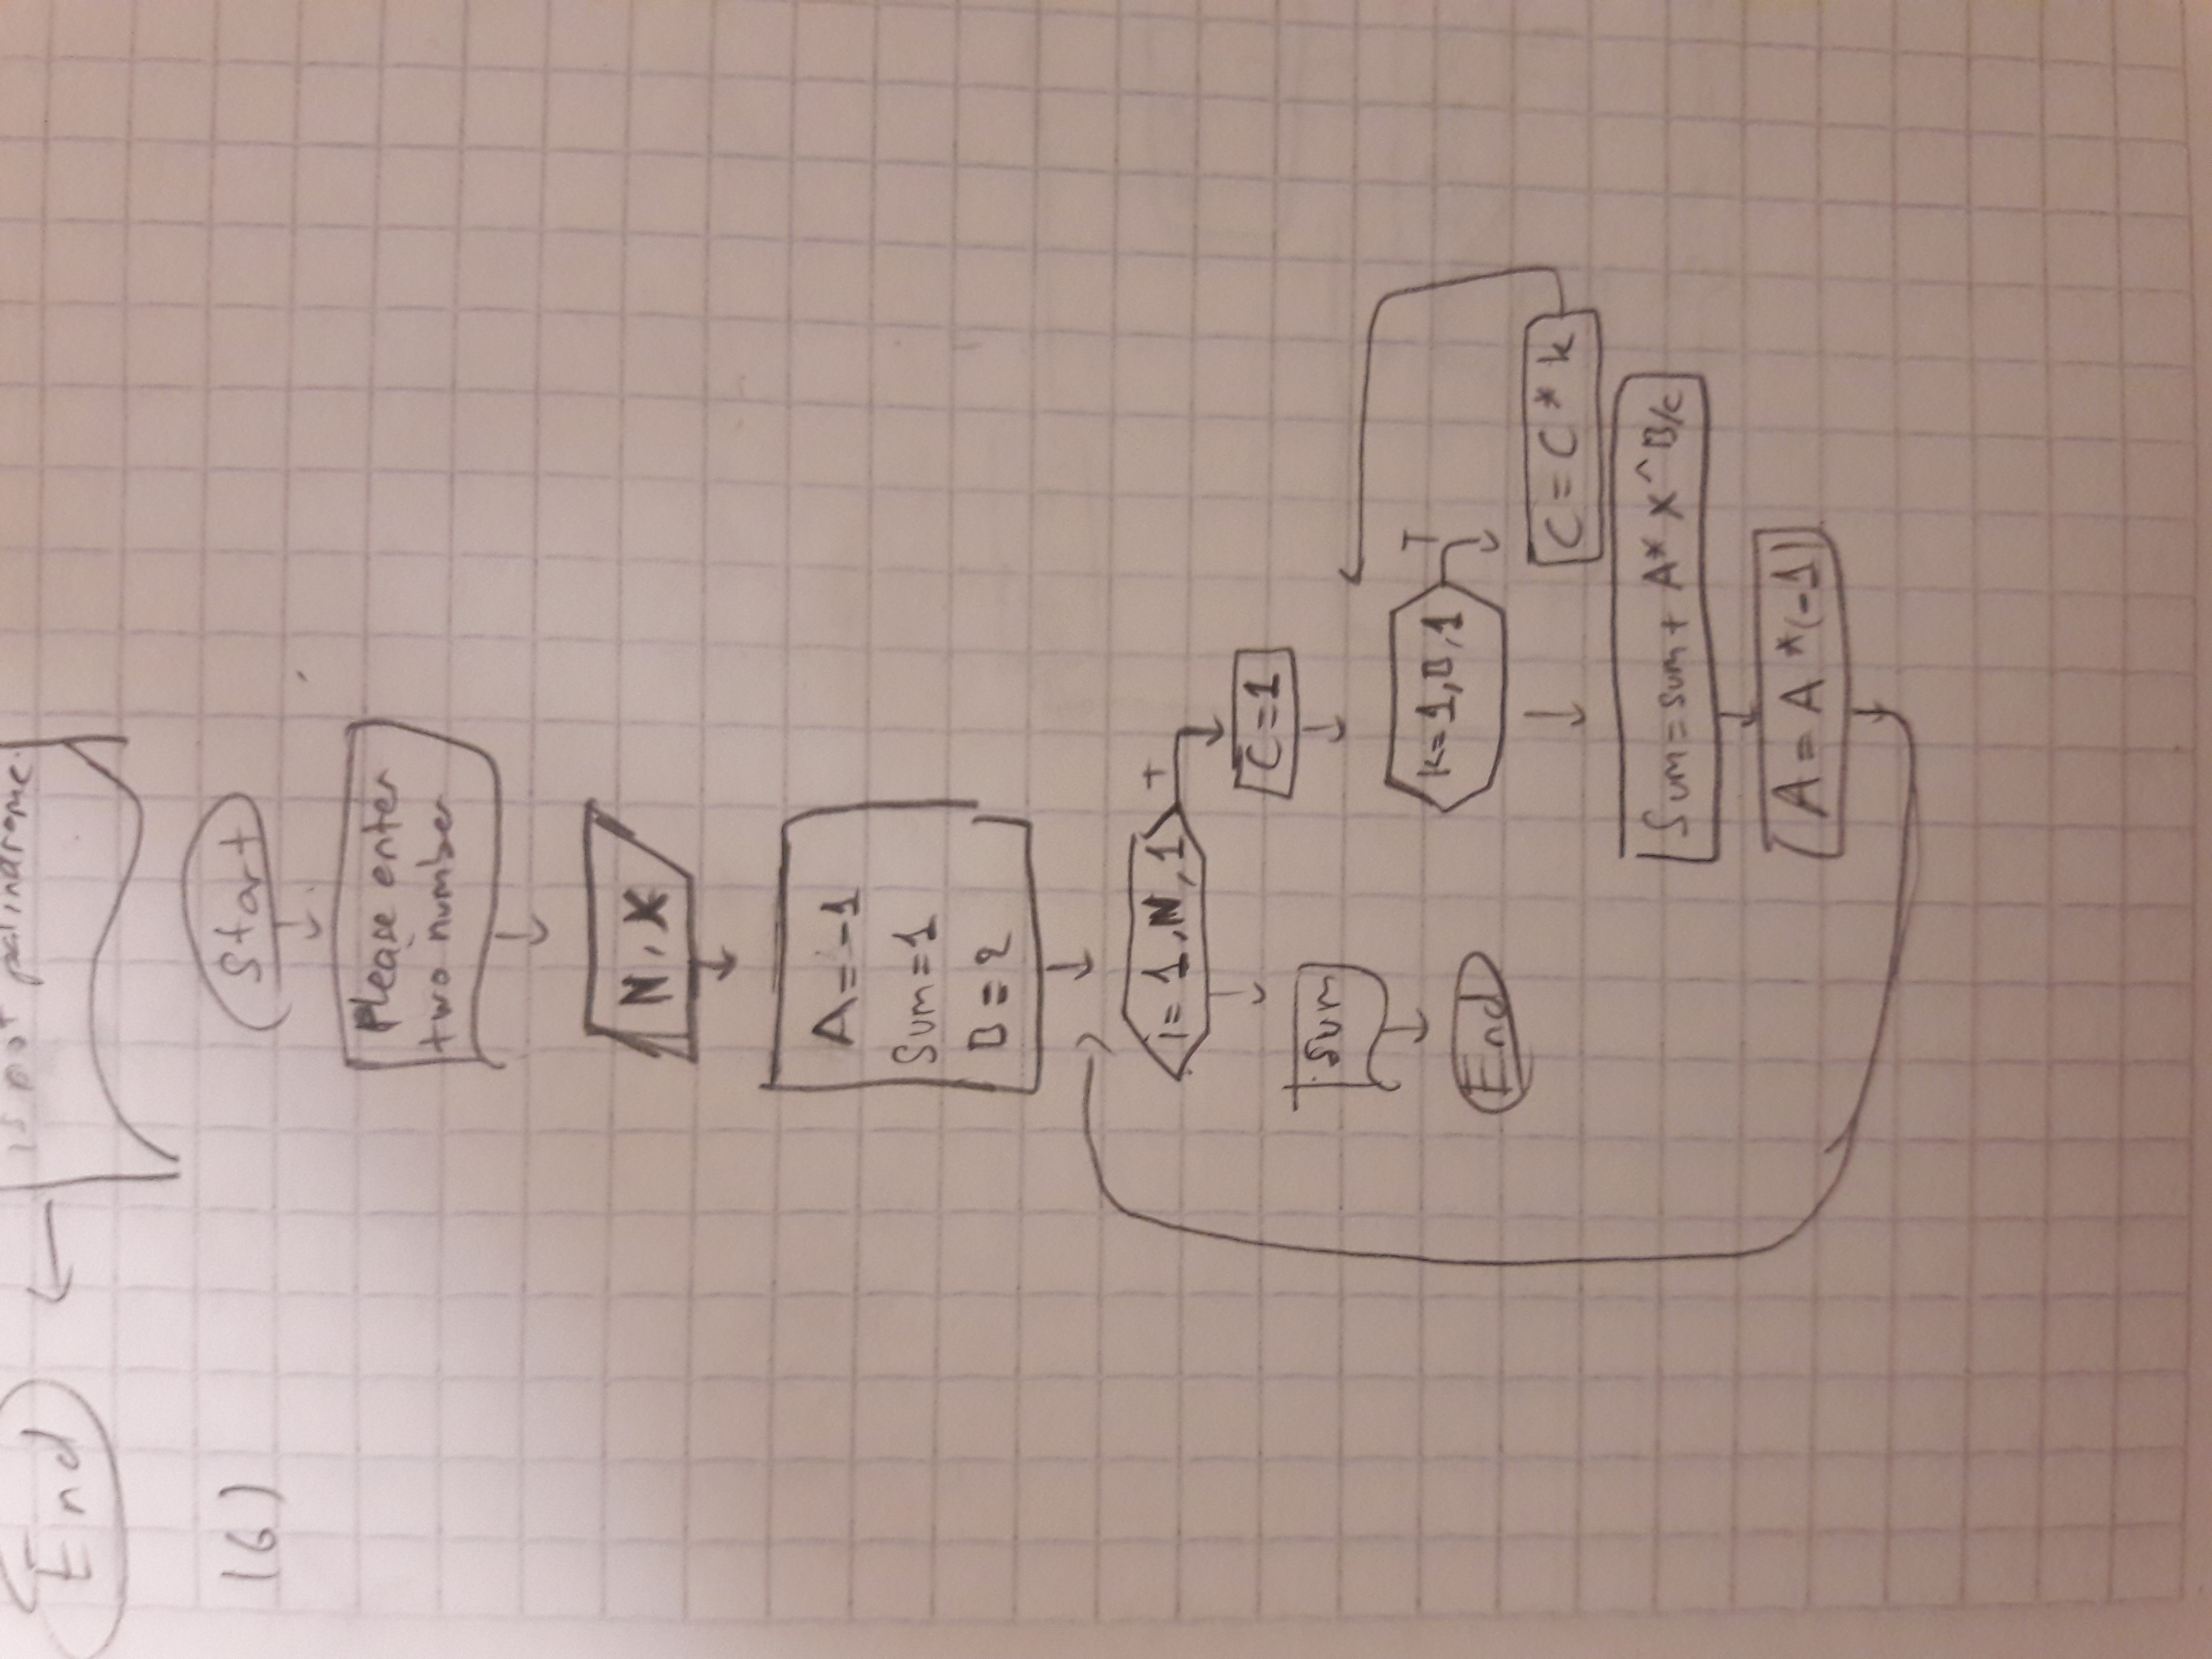 is not palindrome.
End
16)
Start
Please enter
two number
N, X
A = -1
Sum = 1
B = 2
i = 1, N, 1
+
C = 1
Sum
T
k = 1, B, 1
End
C = C * k
Sum = sum + A * X ^ B/c
A = A * (-1)